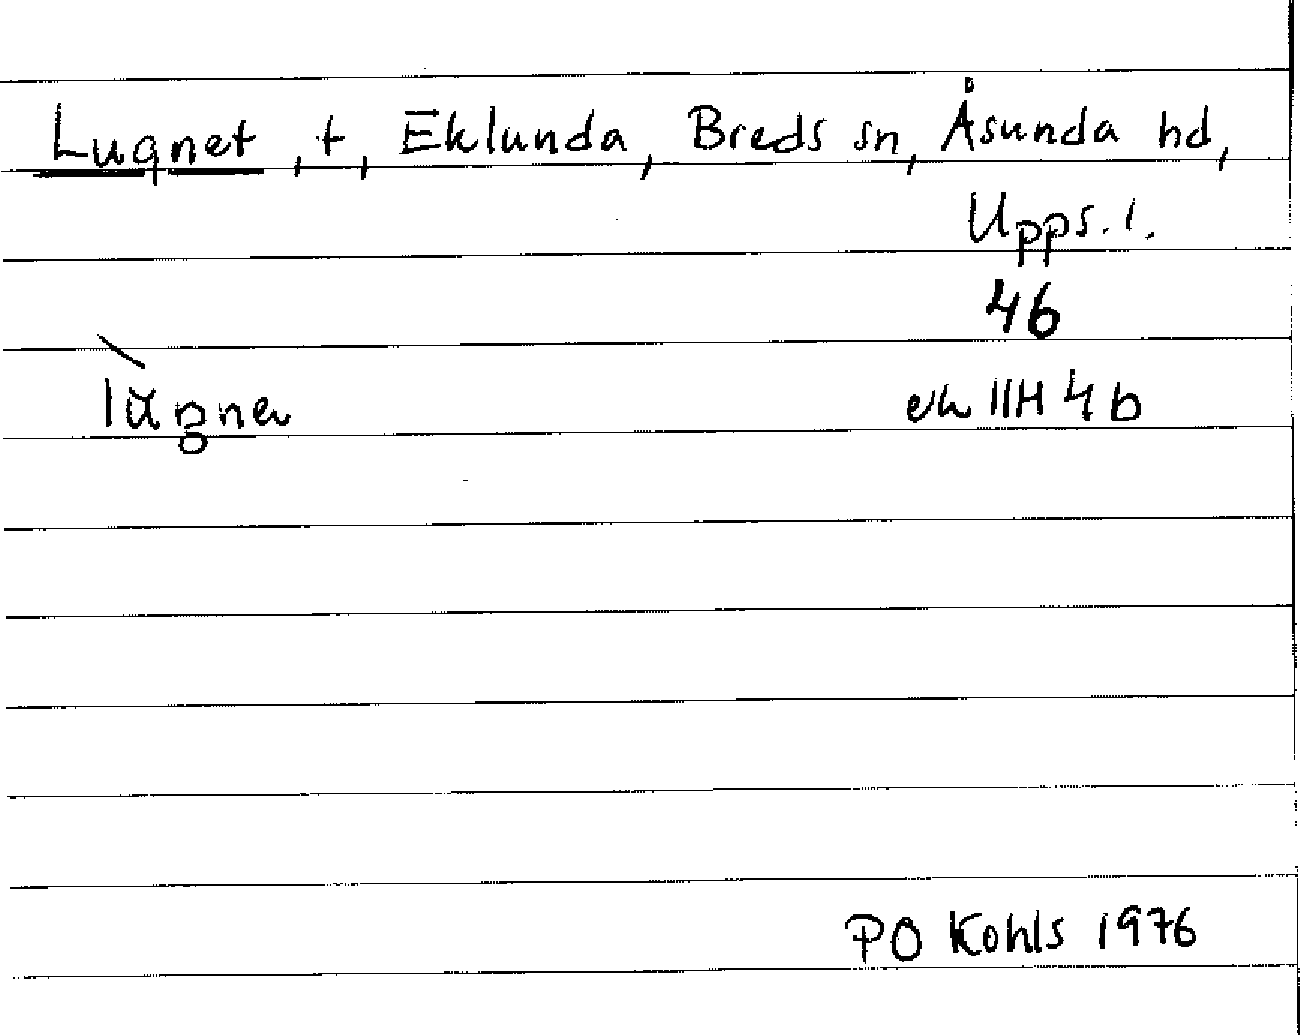 Lugnet, t, Eklunda, Breds sn, Åsunda hd,
Upps. l.
46
ek 11H 4b
PO Kohls 1976